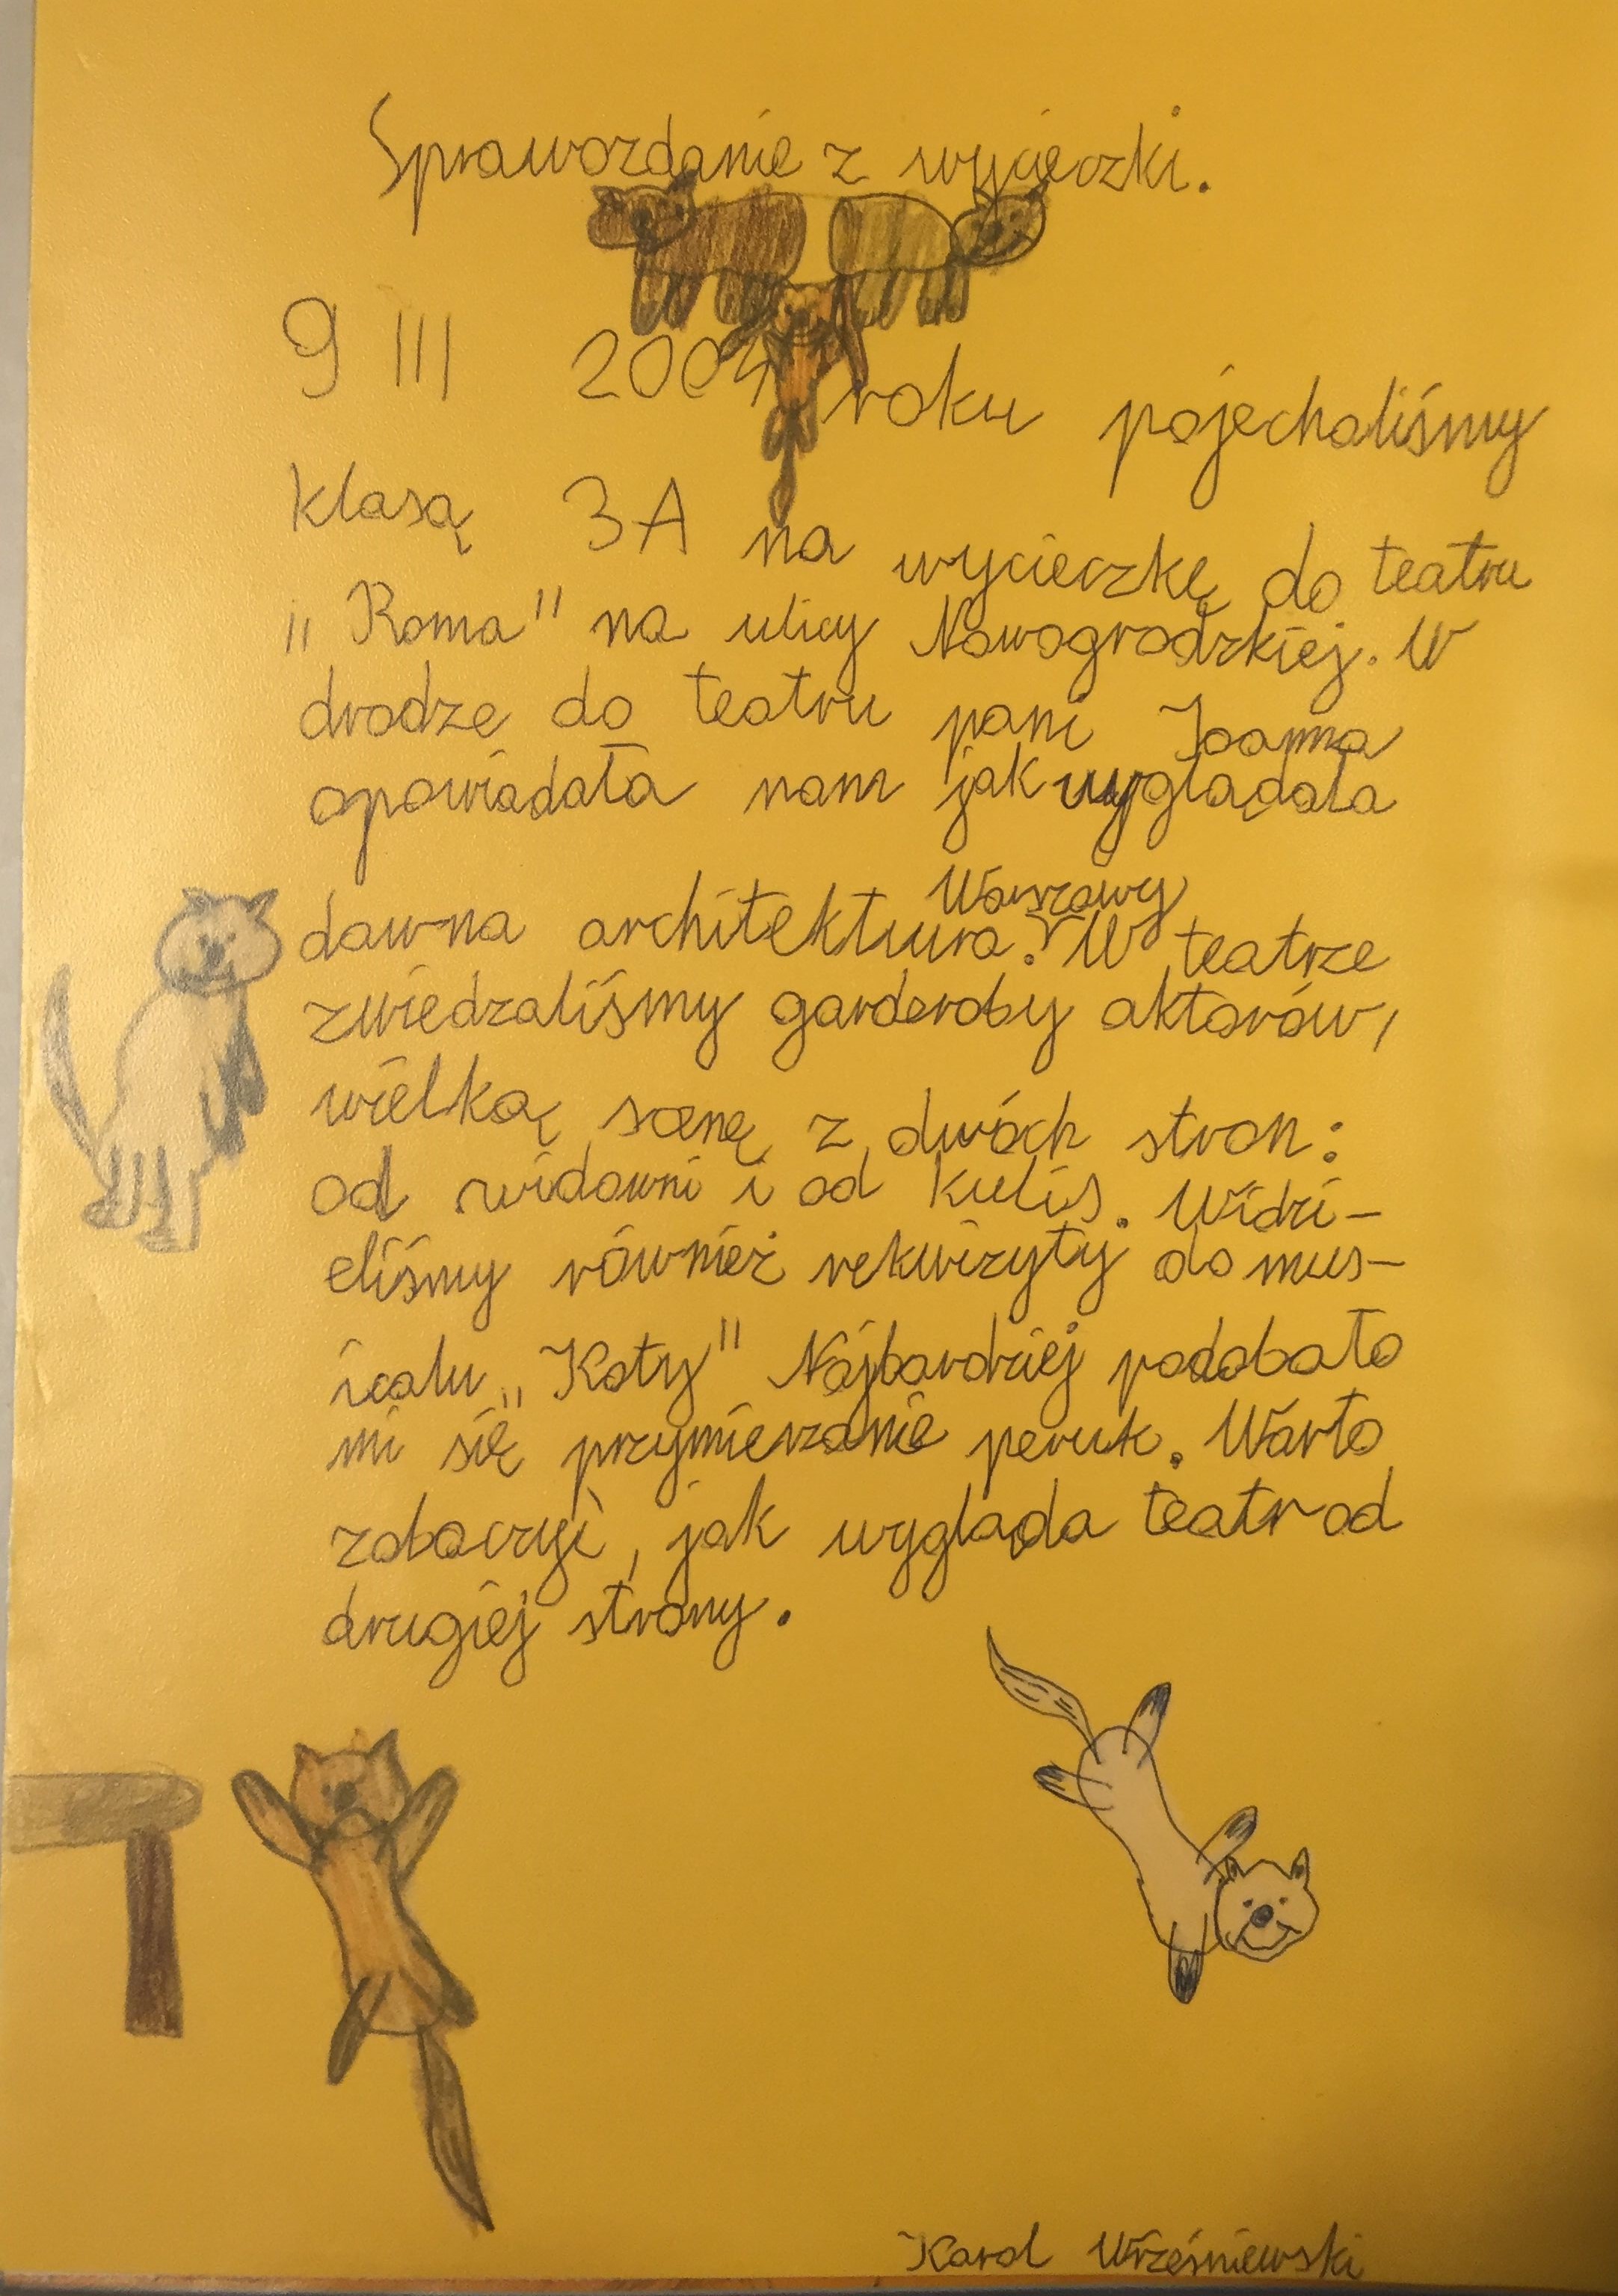 Sprawozdanie z wycieczki.
9 III 2004 roku pojechaliśmy
klasą 3A na wycieczkę do teatru
„Roma" na ulicy Nowogrodzkiej. W
drodze do teatru pani Joanna
opowiadała nam jak wyglądała
Warszawy
dawna architektura. W teatrze
zwiedzaliśmy garderoby aktorów,
wielką scenę z dwóch stron:
od widowni i od kulis. Widzi-
eliśmy również rekwizyty do mus-
icalu „Koty" Najbardziej podobało
mi się przymierzanie peruk. Warto
zobaczyć, jak wygląda teatr od
drugiej strony.
Karol Wrześniewski